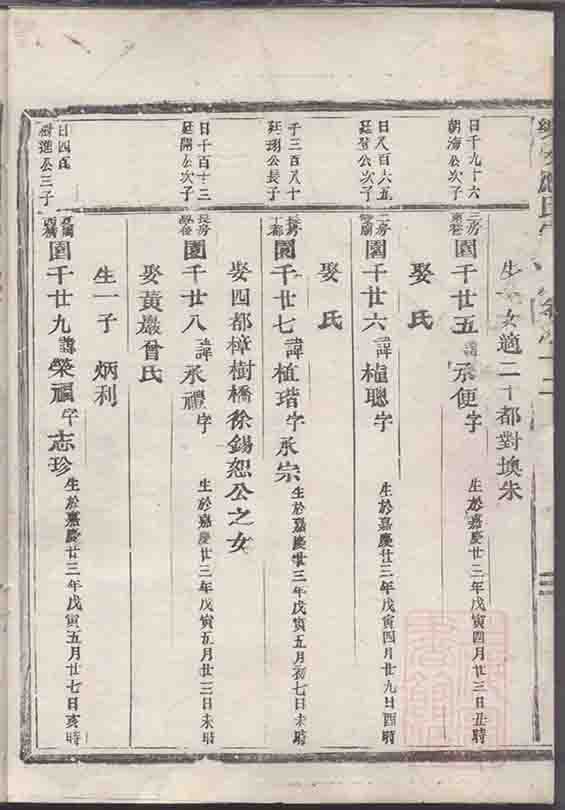 生 女適二十都對墺朱
日千九十六
朝海公次子
三房
園千廿五諱承便字 生於嘉慶廿三年戊寅四月廿三日丑時
娶 氏
日八百六五
廷登公次子
二房
園千廿六諱植聰字 生於嘉慶廿三年戊寅四月廿九日酉時
娶 氏
千三百八十
廷珝公長子
園千廿七諱植瑎字承宗 生於嘉慶廿三年戊寅五月初七日未時
娶四都樟樹橋徐錫恕公之女
日千百十三
廷開公次子
長房
園千廿八諱承禮字 生於嘉慶廿三年戊寅五月廿三日未時
娶黃巖曾氏
生一子 炳利
日四百
進公三子
園千廿九諱榮禎字志珍 生於嘉慶廿三年戊寅五月廿七日亥時